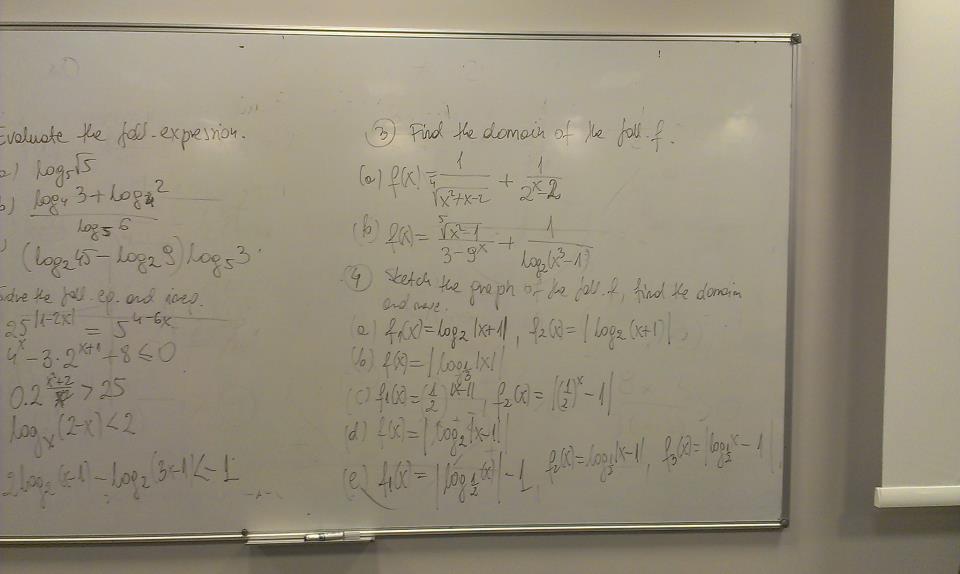 Evaluate the foll. expression.
a) log₅√5
b) (log₄ 3 + log₄ 2) / log₅ 6
(log₂ 45 − log₂ 9) log₅ 3
Solve the foll. eq. and ineq.
25^|1-2x| = 5^(4-6x)
4^x − 3·2^(x+1) + 8 ≤ 0
> 25
log_x (2-x) < 2
2log₂(x-1) − log₂(3x-1) < −1
③ Find the domain of the foll. f.
(a) f(x) = 1/⁴√(x²+x-2) + 1/(2^x − 2)
(b) f(x) = ⁵√(x²-1)/(3-9^x) + 1/log₂(x³-1)
④ Sketch the graph of the foll. f, find the domain
and
(a) f₁(x) = log₂|x+1|, f₂(x) = |log₂(x+1)|
(b) f(x) = |log_(1/3)|x||
(c) f₁(x) = (1/2)^|x-1|, f₂(x) = |(1/2)^x − 1|
(d) f(x) = |log₂|x-1||
(e) f₁(x) = |log_(1/2)(x)| − 1, f₂(x) = log_(1/3)|x-1|, f₃(x) = |log_(1/2) x − 1|